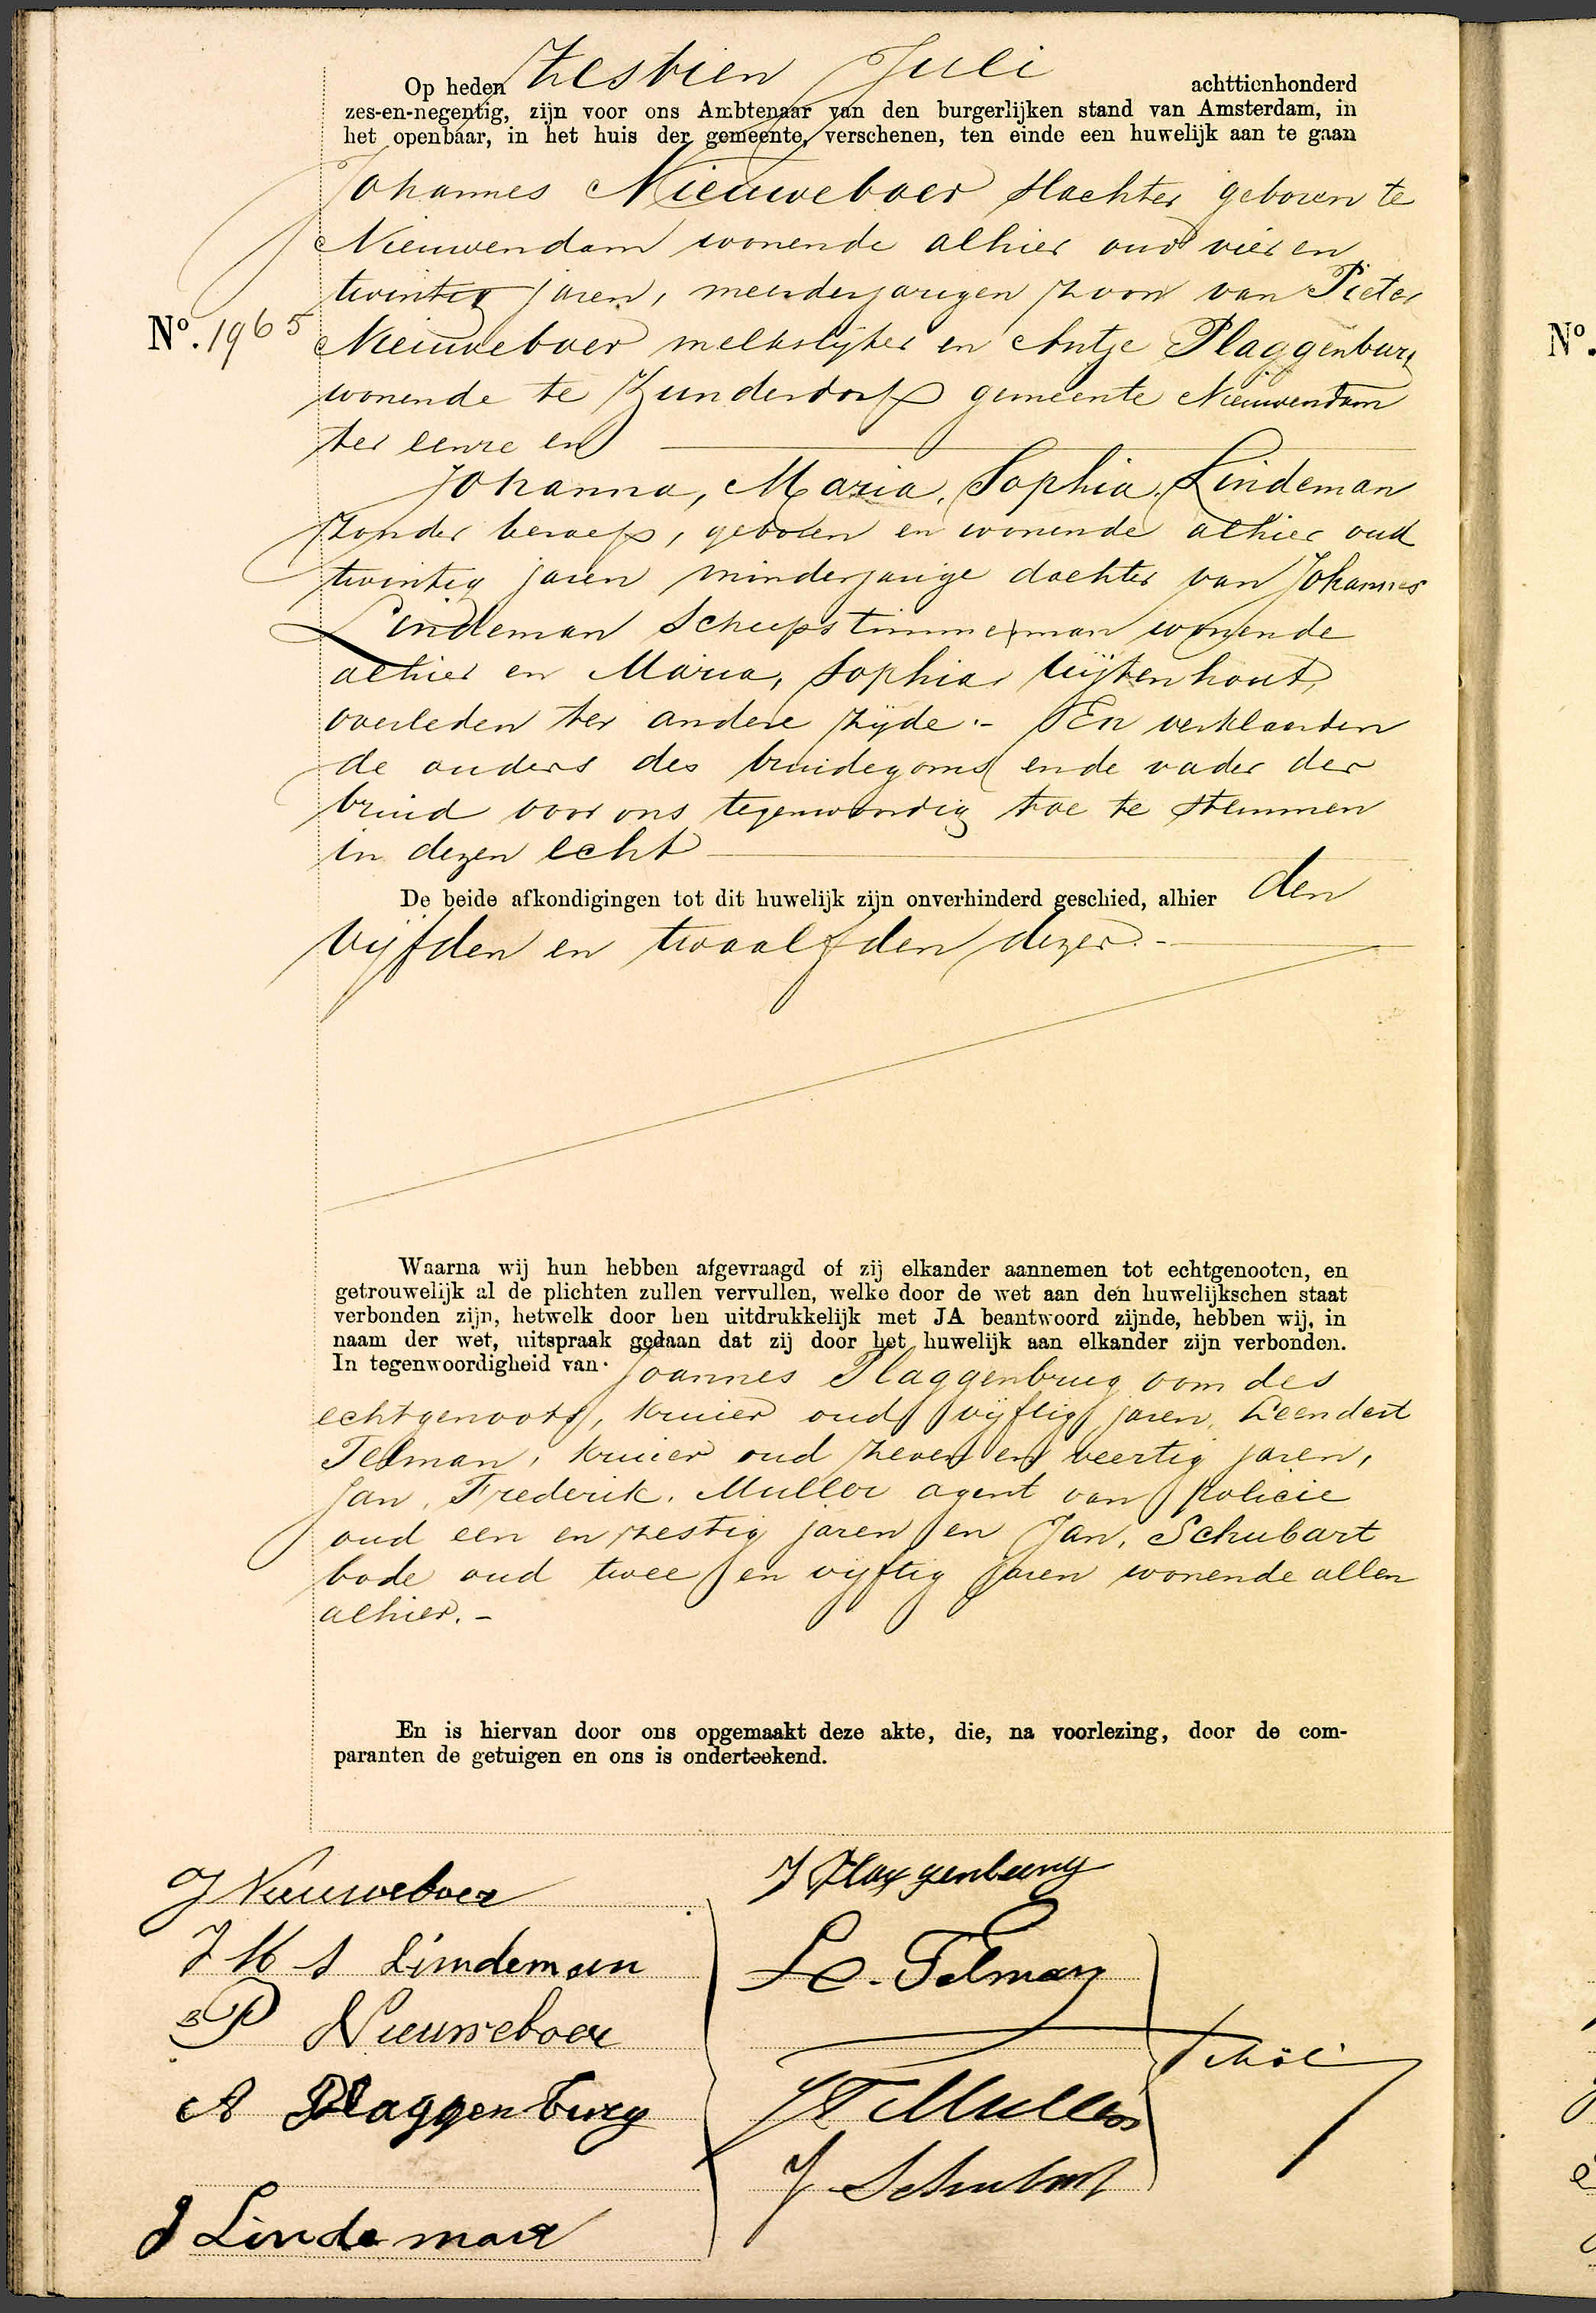 Op heden Zestien Juli achttienhonderd
zes-en-negentig, zijn voor ons Ambtenaar van den burgerlijken stand van Amsterdam, in
het openbaar, in het huis der gemeente, verschenen, ten einde een huwelijk aan te gaan
Johannes Nieuweboer slachter geboren te
Nieuwendam wonende alhier oud vier en
twintig jaren, meerderjarigen zoon van Pieter
No. 1965
Nieuweboer melkslijter en Antje Plaggenburg
wonende te Zunderdorp gemeente Nieuwendam
ter eenre en
Johanna, Maria, Sophia, Lindeman
zonder beroep, geboren en wonende alhier oud
twintig jaren minderjarige dochter van Johannes
Lindeman Scheepstimmerman wonende
alhier en Maria, Sophia Uijtenhout,
overleden ter andere zijde.- En verklaarden
de ouders des bruidegoms en de vader der
bruid voor ons tegenwoordig toe te stemmen
in dezen echt
De beide afkondigingen tot dit huwelijk zijn onverhinderd geschied, alhier den
vijfden en twaalfden dezer.-
Waarna wij hun hebben afgevraagd of zij elkander aannemen tot echtgenooten, en
getrouwelijk al de plichten zullen vervullen, welke door de wet aan den huwelijkschen staat
verbonden zijn, hetwelk door hen uitdrukkelijk met JA beantwoord zijnde, hebben wij, in
naam der wet, uitspraak gedaan dat zij door het huwelijk aan elkander zijn verbonden.
In tegenwoordigheid van Joannes Plaggenbrug oom des
echtgenoots, kruier oud vijftig jaren, Leendert
Telman, kruier oud zeven en veertig jaren,
Jan, Frederik, Muller agent van policie
oud een en zestig jaren en Jan, Schubart
bode oud twee en vijftig jaren wonende allen
alhier.-
En is hiervan door ons opgemaakt deze akte, die, na voorlezing, door de com-
paranten de getuigen en ons is onderteekend.
J Nieuweboer
J Plaggenburg
J M S Lindeman
L. Telman
P Nieuweboer
A Plaggenburg
J F Muller
J Schubart
J Lindeman
No.